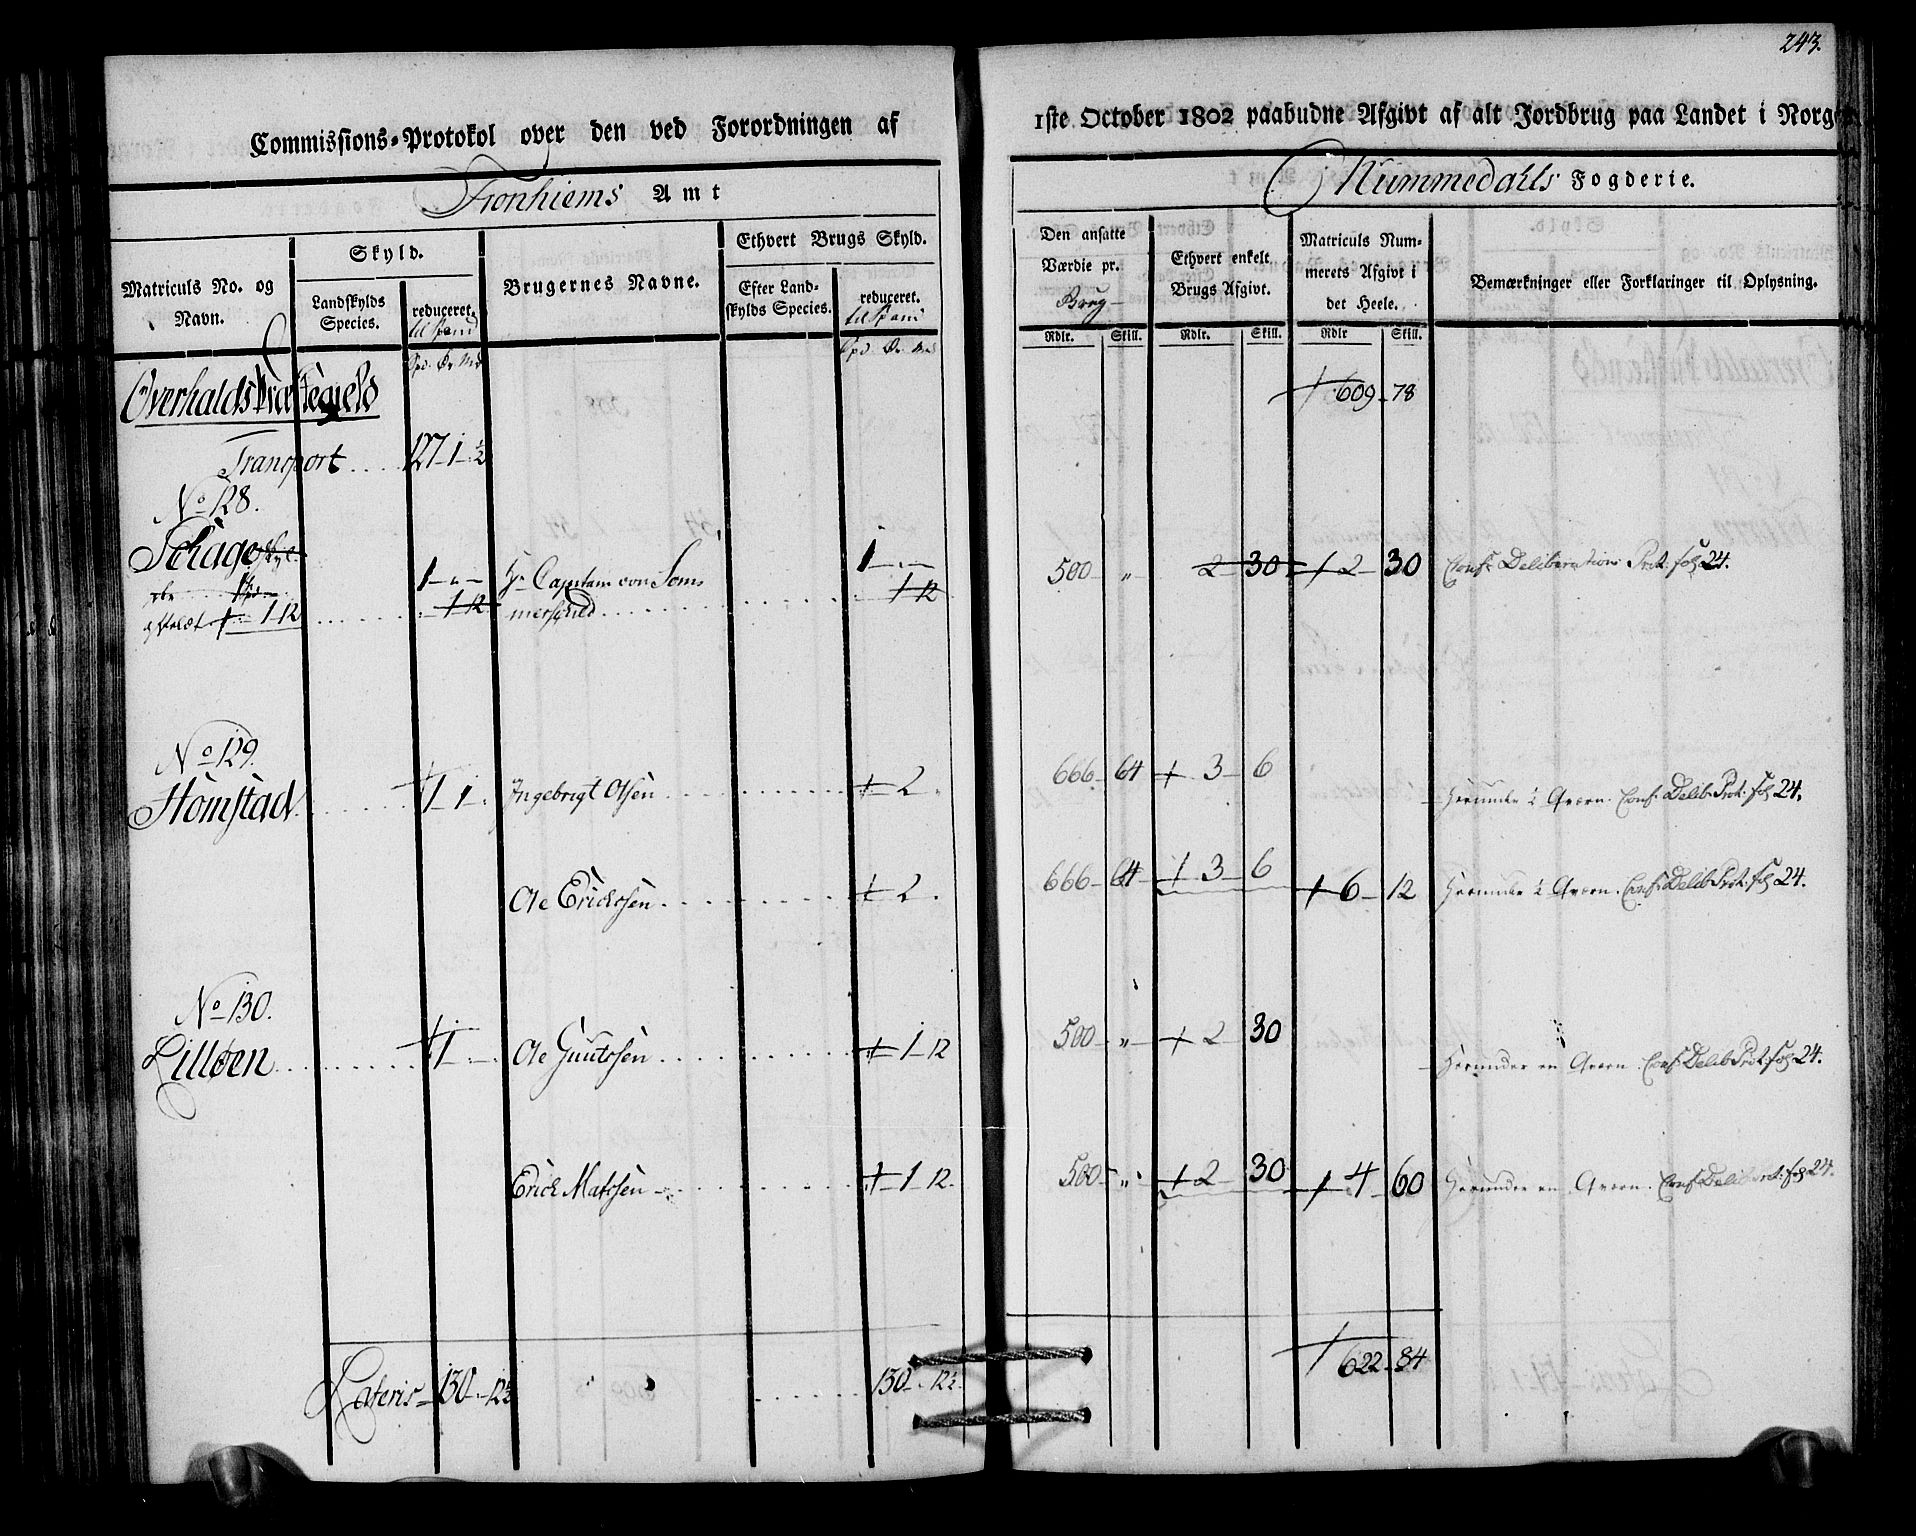 243.
Commissions-Protokol over den ved Forordningen af
1ste October 1802 paabudne Afgivt af alt Jordbrug paa Landet i Norge
Tronhiems Amt
Nummedahls Fogderie.
Matriculs No. og Navn.
Skyld.
Landskylds Species.
reduceret. til Spand
Brugernes Navne.
Ethvert Brugs Skyld.
Efter Landskylds Species.
reduceret. til Spand
Den ansatte Værdie pr. Brug
Ethvert enkelt Brugs Afgivt.
Matriculs Nummerets Afgivt i det Heele.
Bemærkninger eller Forklaringer til Oplysning.
Spd. Ør. Mk
Spd. Ør. Mk
Rdlr. Skill. Rdlr. Skill. Rdlr Skill.
Overhalds Præstegield
609 - 78
Transport .... 127 - 1 - ½
No 128.
Schage 1 - „ - Hr Capitain von Som 1 - „ - 500 - „ - 2 - 30 2 - 30 Conf. Deliberations Prot. fol 24.
1 12 1 12 merschield 1 12
No 129.
Homstad 1 1 Ingebrigt Olsen 2 666 - 64 3 - 6 Herunder i Qværn. Conf. Delib. Prot. fol 24.
Ole Erichsen 2 666 - 64 3 6 6 - 12 Herunder i Qværn. Conf. Delib Prot. fol 24.
No 130.
Lilløen 1 Ole Guutssen 1 12 500 - „ - 2 30 Herunder en Qværn. Conf. Delib Prot. fol 24.
Erich Matssen 1 12. 500 - „ - 2 30 4 - 60 Herunder en Qværn. Conf Delib Prot. fol 24.
Lateris - 130 - „ - 12½ 130 - „ - 12½ 622 - 84